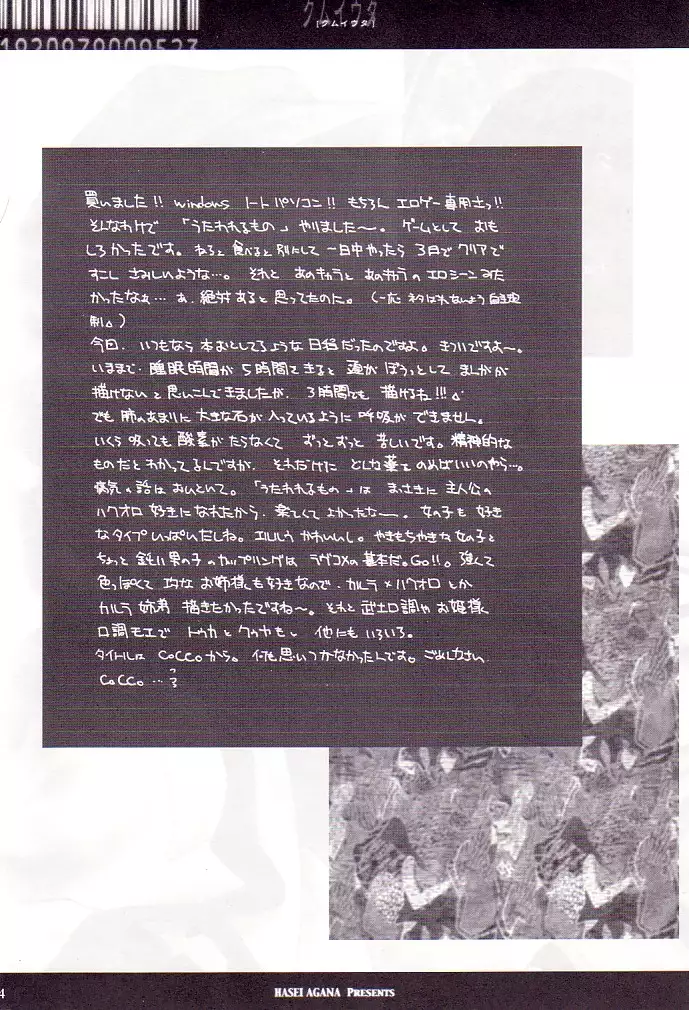 クムイウタ
[クムイウタ]
1920979009523
買いました!! windows ノートパソコン!! もちろん エロゲー専用機っ!!
そんなわけで 「うたわれるもの」 やりました〜。 ゲームとして おも
しろかったです。 ねると 食べると 別にして 一日中やったら 3日で クリアで
すこし さみしいような…。 それと あのキャラと あのキャラの エロシーン みた
かったなぁ… あ、絶対あると 思ってたのに。 (一応 ネタばれないよう 自主規
制△)
今回、いつもなら 本おとしてるような 日程だったのですよ。 きついですよ〜。
いままで、睡眠時間が 5時間できると 頭が ぼうっとして まんがが
描けない と 思いこんできましたが、 3時間でも 描けるね!!!△
でも 肺のあまりに 大きな石が 入っているように 呼吸が できません。
いくら 吸っても 酸素が たらなくて ずっとずっと 苦しいです。 精神的な
ものだと わかってるんですが、 それだけに どんな薬を のめばいいのやら…。
病気の話は おいといて。 「うたわれるもの」は まっさきに 主人公の
ハクオロ 好きに なれたから、 楽しくて よかったな〜。 女の子も 好き
なタイプ いっぱいだしね。 エルルゥ かわいいし。 やきもちやきな 女の子と
ちょっと 鈍い 男の子 のカップリングは ラヴコメの 基本だ。Go!!。 強くて
色っぽくて 巧みな お姉様も 好きなので、カルラ×ハクオロ とか
カルラ 姉弟 描きたかったですね〜。 それと 武士口調や お姫様
口調モエで トウカ と クゥヤも。 他にも いろいろ。
タイトルは CoCCo から。 何も思いつかなかったんです。ごめんなさい
CoCCo …?
4
HASEI AGANA PRESENTS